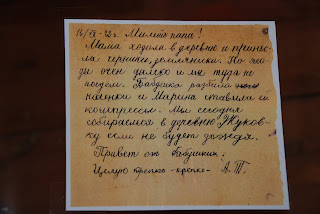 16/VI - 42 г. Милый папа!
Мама ходила в деревню и принес-
ла черники, земляники. Но
очен далеко и мы туда не
пойдем. Бабушка разбила
коленки и Марина ставила ей
компрессы. Мы сегодня
собираемся в деревню Жуков-
ку если не будет дождя.
Привет от бабушки.
Целую крепко-крепко- А. Т.